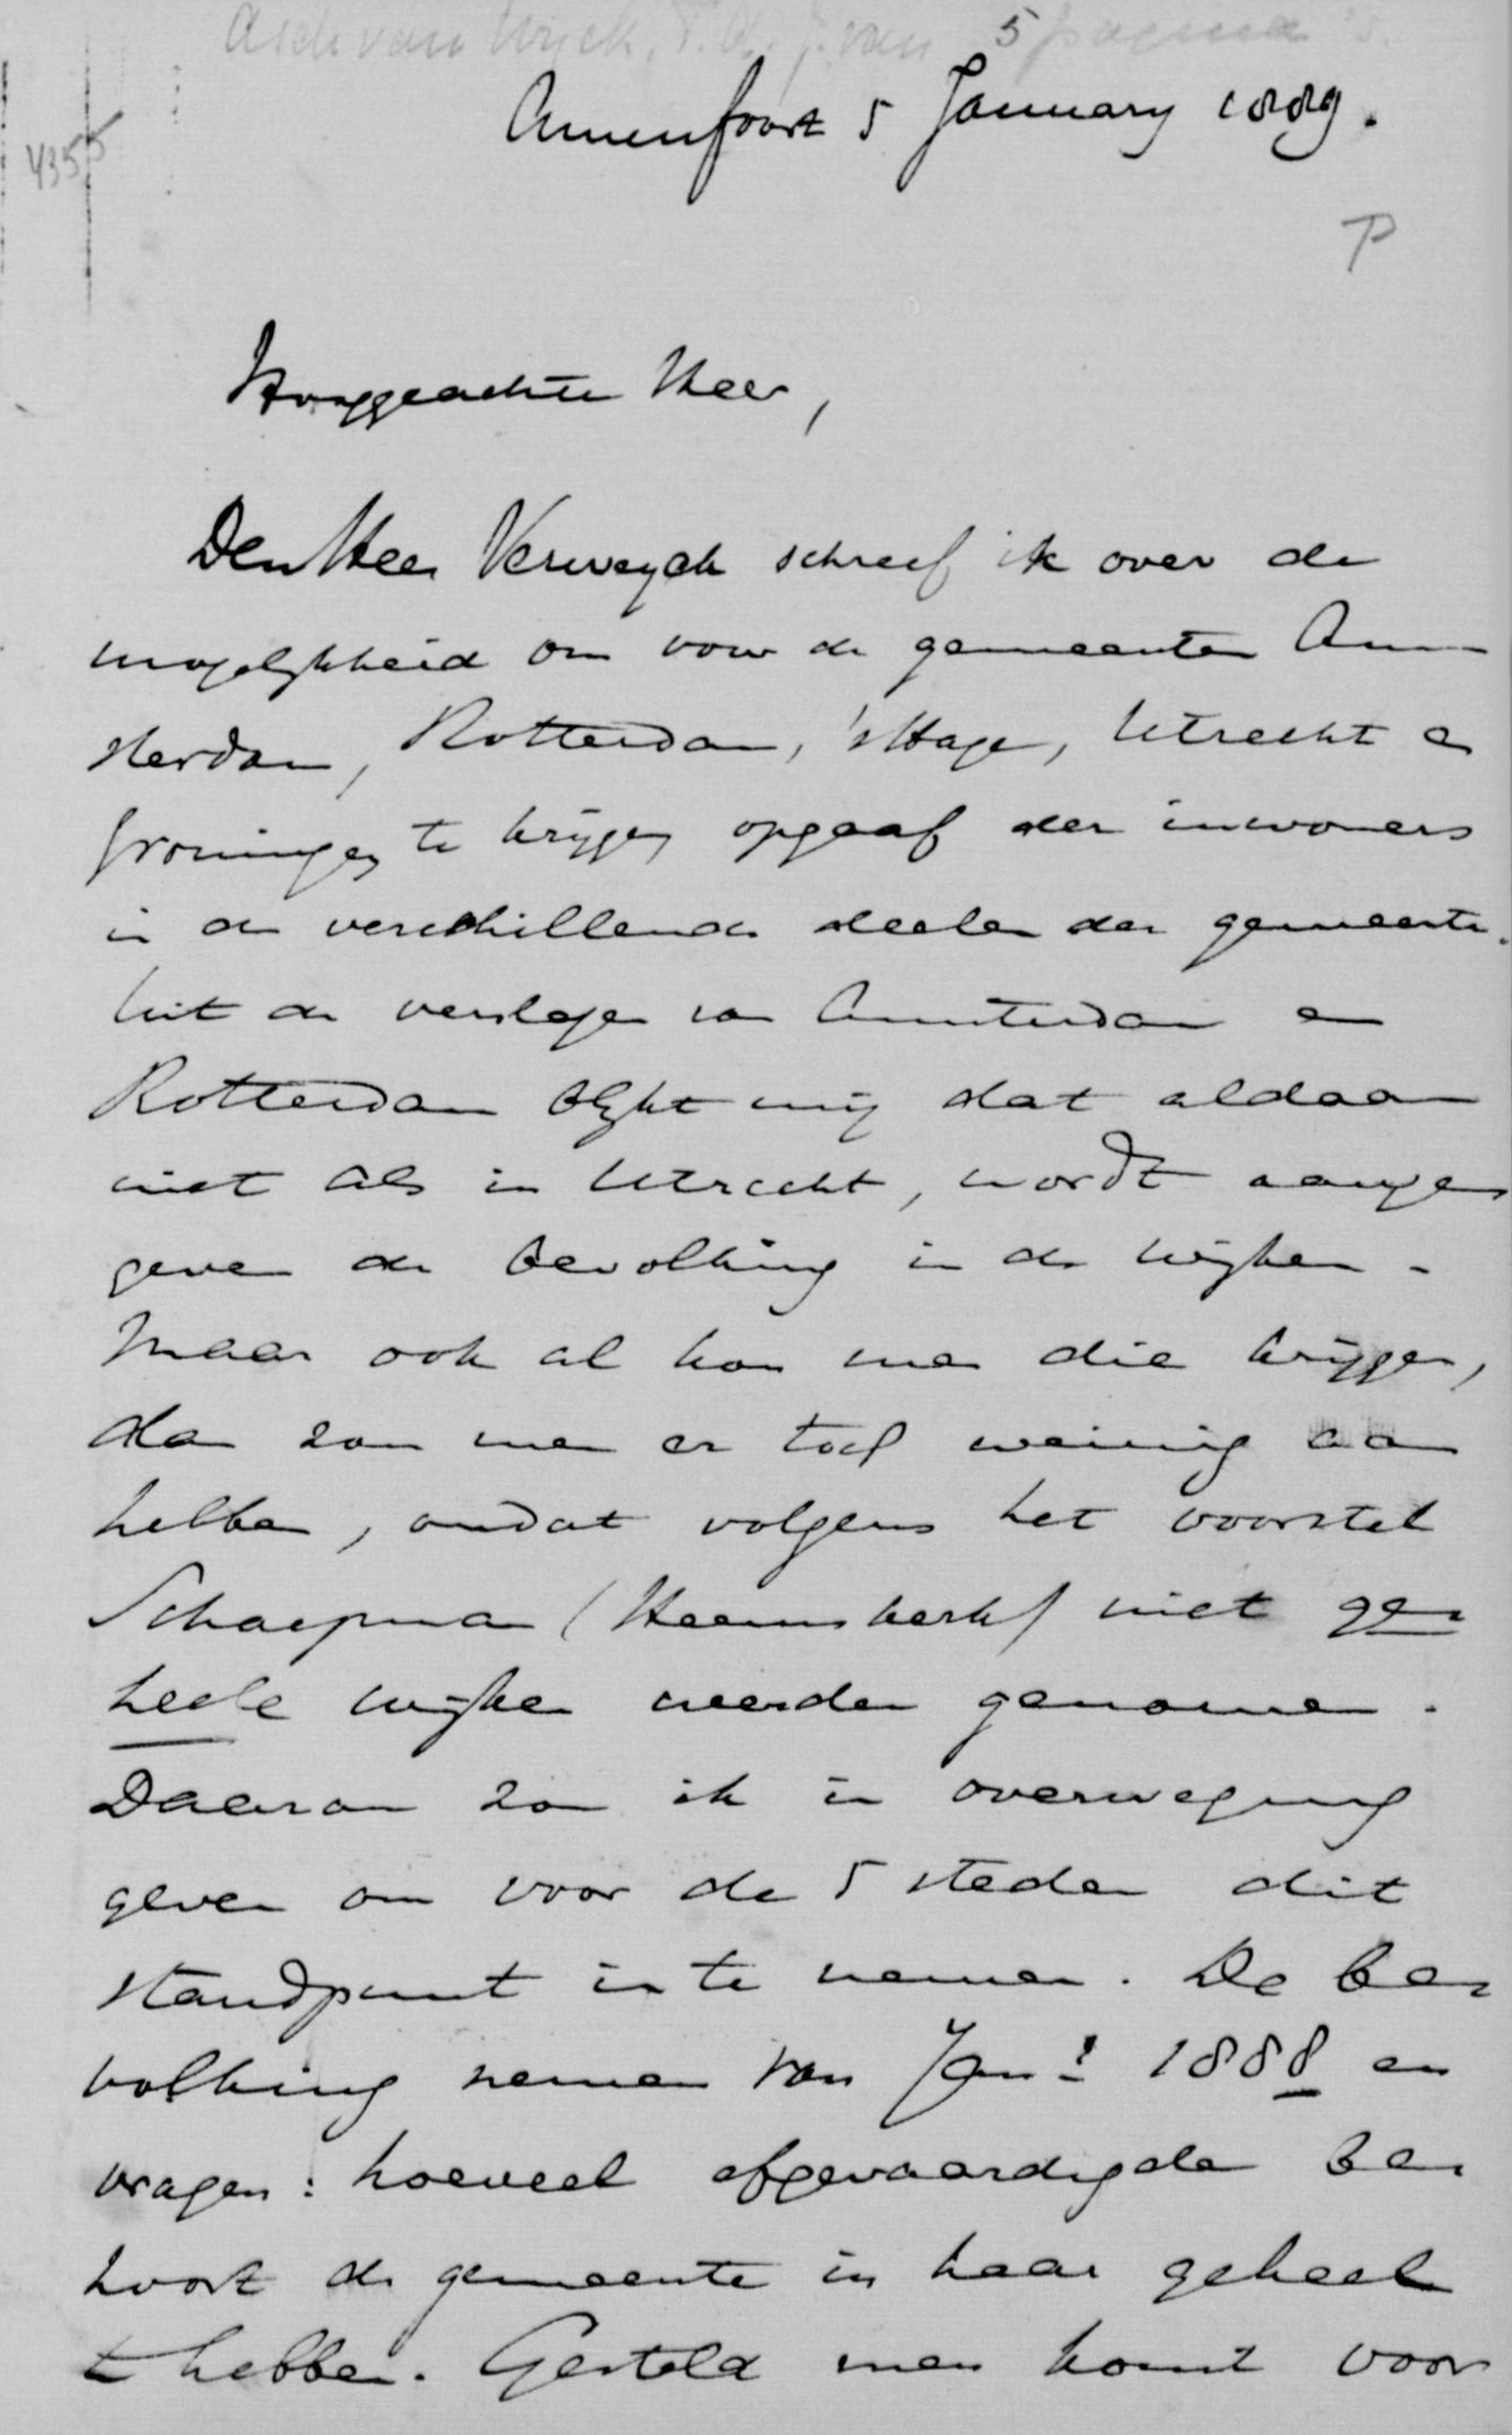 Asch van Wijck, 5 pagina's.
Amersfoort 5 January 1889.
4355
P
Hooggeachte Heer,
Den Heer Verweyck schreef ik over de
mogelijkheid om voor de gemeenten Am-
sterdam, Rotterdam, 'sHage, Utrecht en
Groningen te krijgen opgaaf der inwoners
in de verschillende deelen der gemeente.
Uit de verslagen van Amsterdam en
Rotterdam blijkt mij dat aldaar
niet als in Utrecht, wordt aange
geven de bevolking in de wijken.
Maar ook al kon men die krijgen,
dan zou men er toch weinig aan
hebben, omdat volgens het voorstel
Schaepman (Heemskerk) niet ge-
heele wijken werden genomen.
Daarom zou ik in overweging
geven om voor de 5 steden dit
standpunt in te nemen. De be-
volking nemen van Jan: 1888 en
vragen: hoeveel afgevaardigden be-
hoort de gemeente in haar geheel
te hebben. Gesteld men komt voor